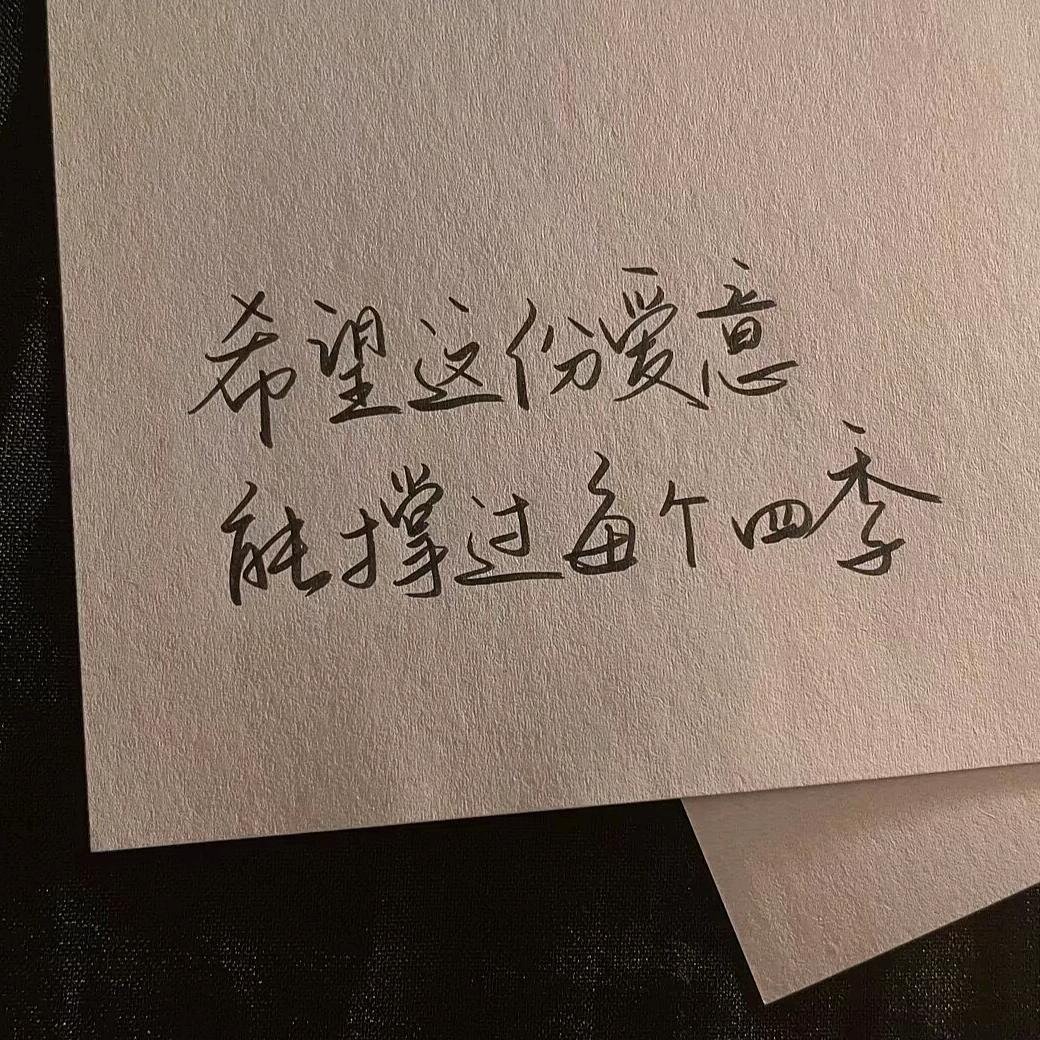 希望这份爱意
能撑过每个四季